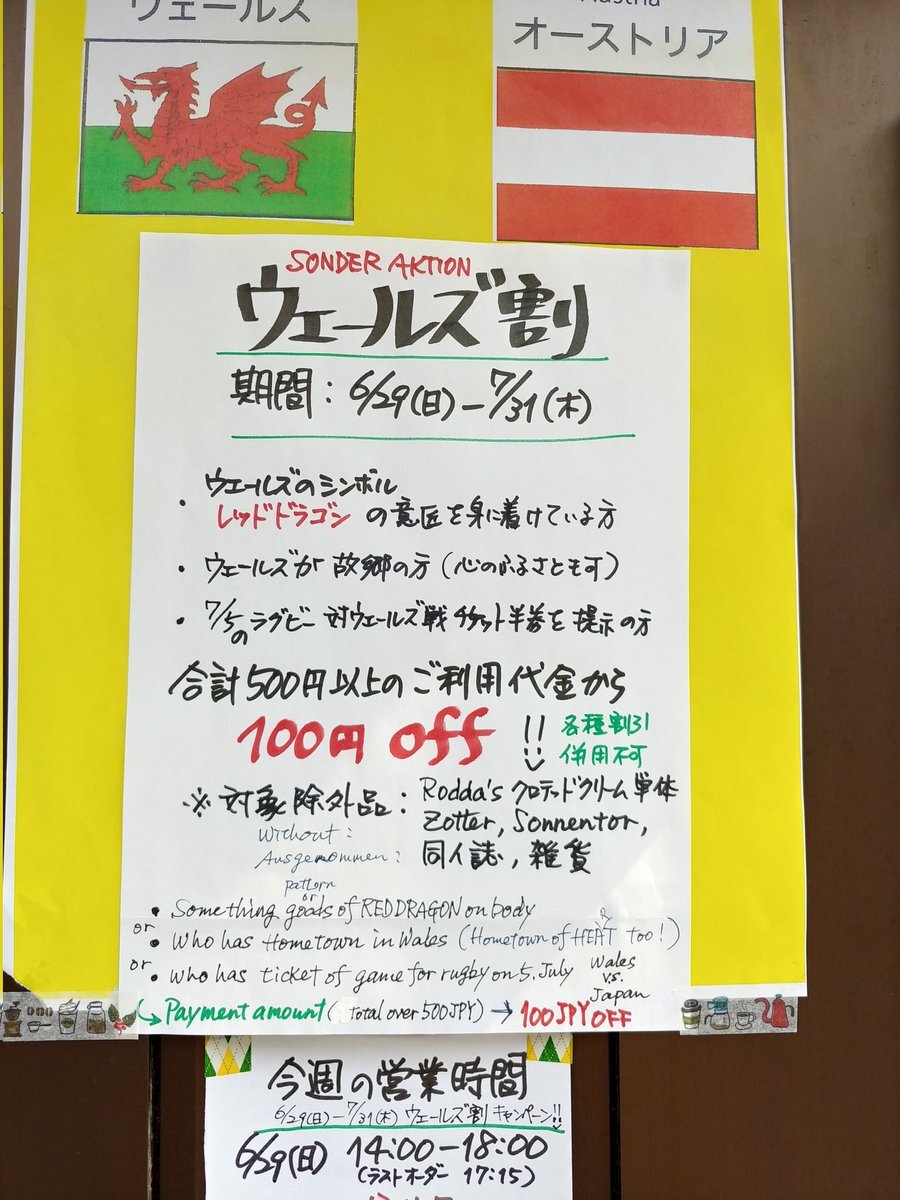 ウェールズ
Austria
オーストリア
SONDER AKTION
ウェールズ割
期間：6/29(日)－7/31(木)
・ウェールズのシンボル
レッドドラゴンの意匠を身に着けている方
・ウェールズが故郷の方（心のふるさとも可）
・7/5のラグビー対ウェールズ戦チケット半券を提示の方
合計500円以上のご利用代金から
100円 off !!
各種割引
併用不可
※対象除外品：Rodda's クロテッドクリーム単体
Zotter, Sonnentor,
同人誌，雑貨
Without:
Ausgenommen:
pattern
or
• Something goods of RED DRAGON on body
or
• Who has Hometown in Wales (Hometown of HEART too!)
or
• Who has ticket of game for rugby on 5. July Wales
v.s.
Japan
Payment amount (Total over 500JPY) → 100JPY OFF
今週の営業時間
6/29(日)－7/31(木) ウェールズ割キャンペーン!!
6/29(日) 14:00－18:00
(ラストオーダー 17:15)